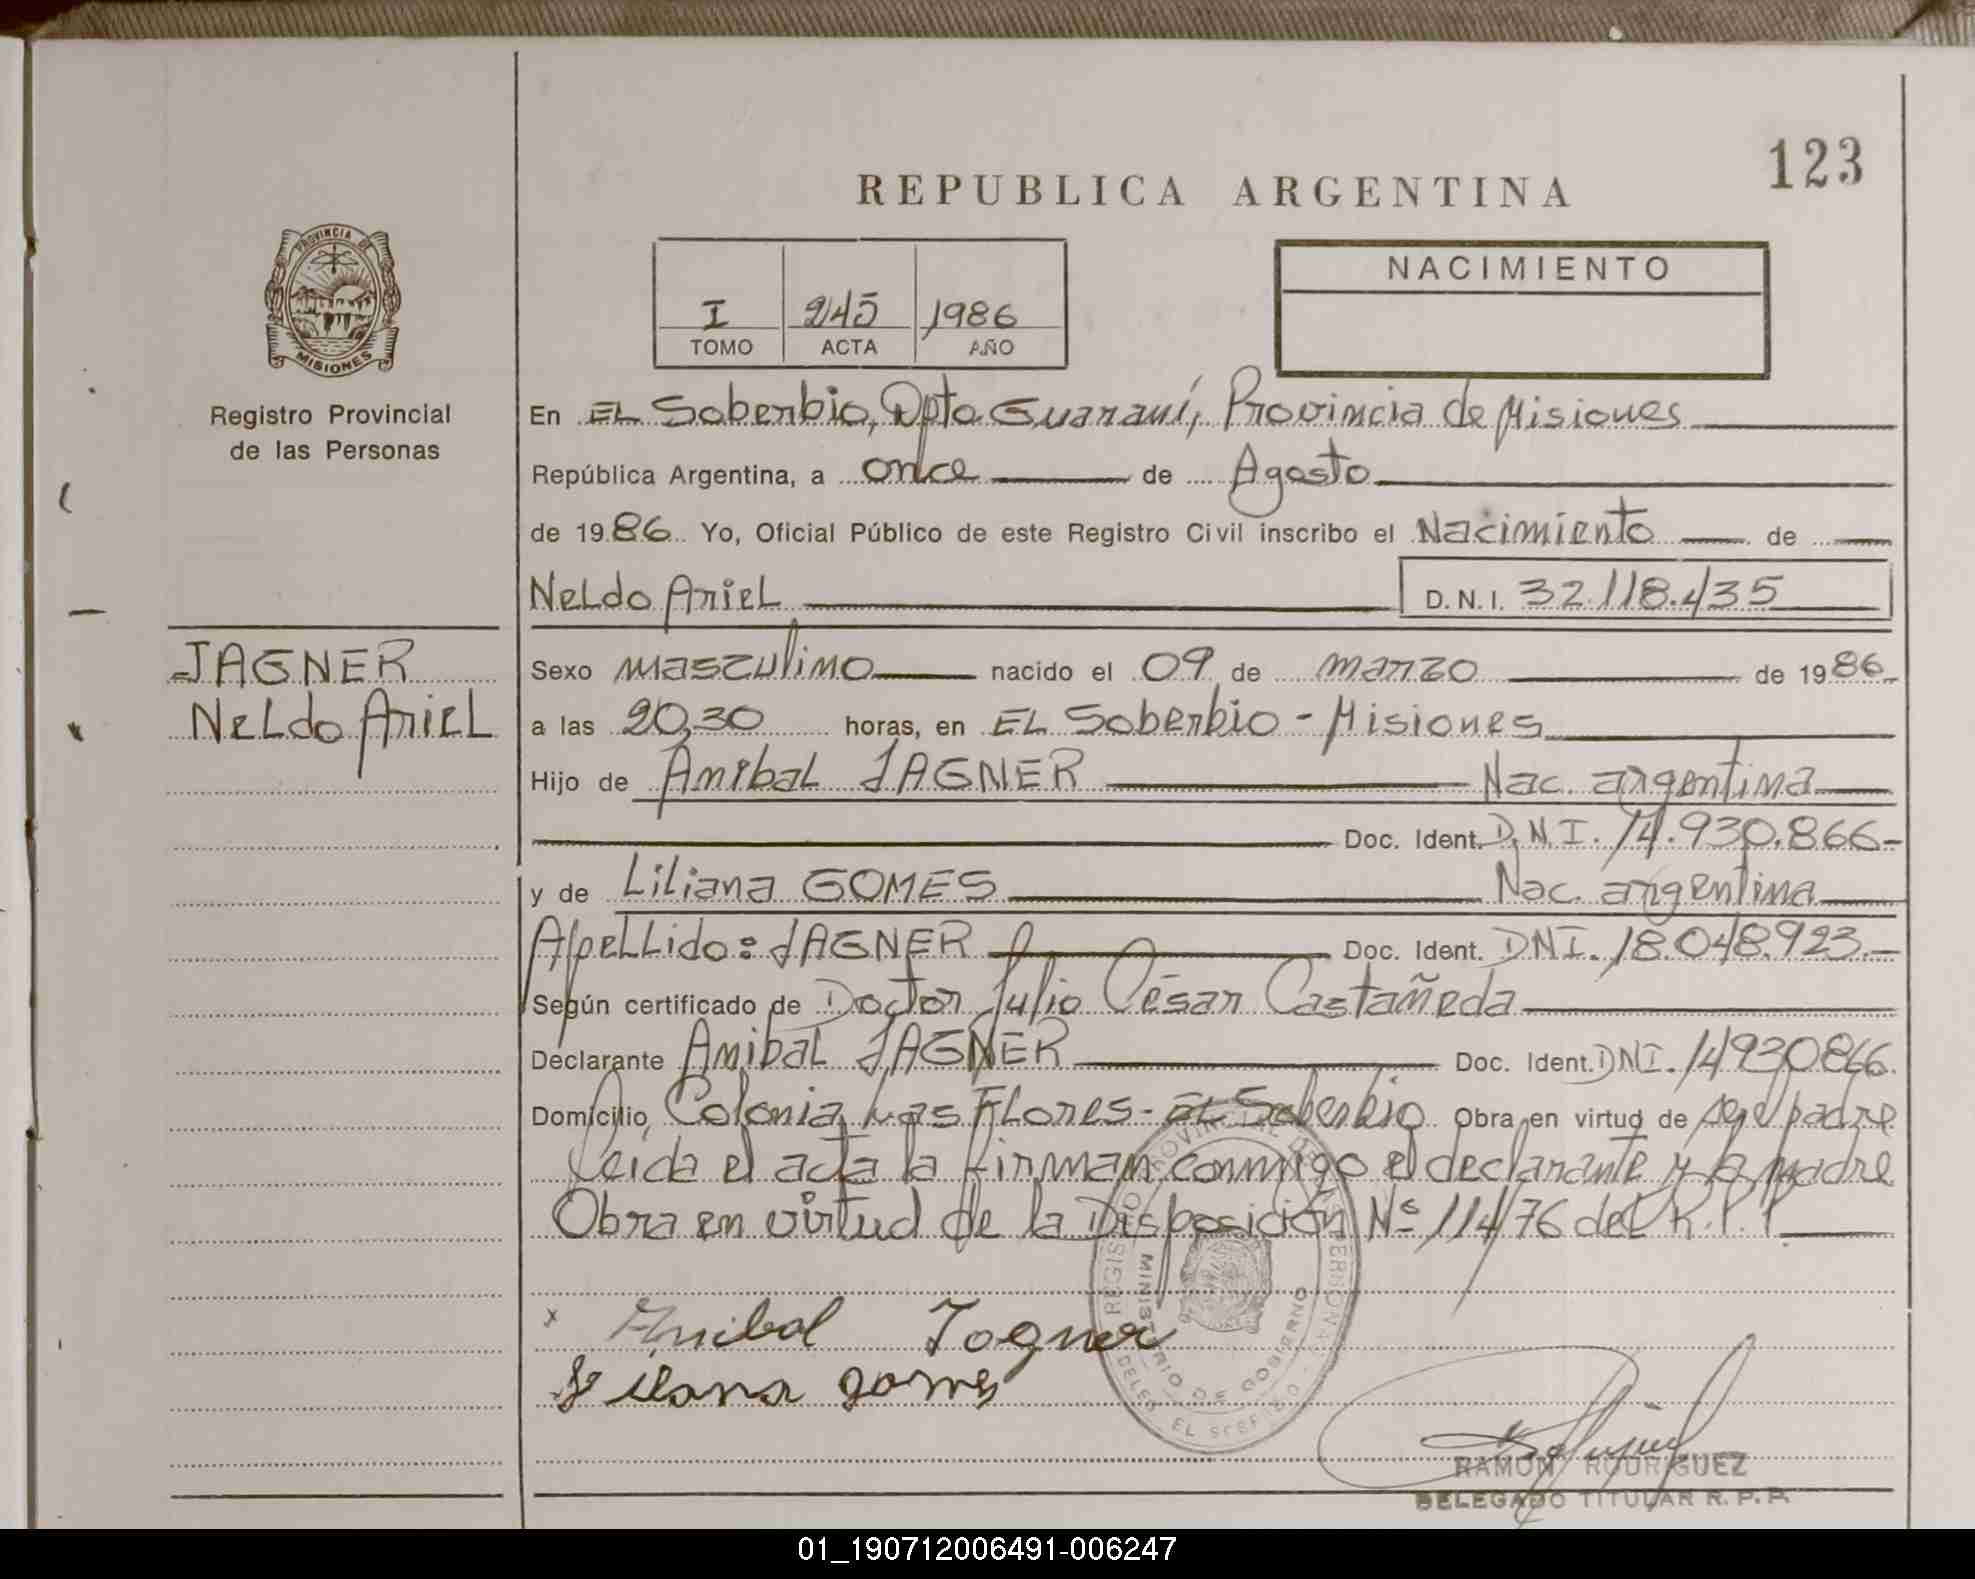 123
REPUBLICA ARGENTINA
PROVINCIA DE
MISIONES
Registro Provincial
de las Personas
I 245 1986
TOMO ACTA AÑO
NACIMIENTO
En EL Soberbio, Dpto. Guaraní, Provincia de Misiones
República Argentina, a once de Agosto
de 1986 Yo, Oficial Público de este Registro Civil inscribo el Nacimiento de
Neldo Ariel D.N.I. 32.118.435
JAGNER
Neldo Ariel
Sexo masculino nacido el 09 de marzo de 1986
a las 20,30 horas, en EL Soberbio - Misiones
Hijo de Anibal JAGNER Nac. argentina
Doc. Ident. D.N.I. 14.930.866-
y de Liliana GOMES Nac. argentina
Apellido: JAGNER Doc. Ident. DNI. 18.048.923.-
Según certificado de Doctor Julio César Castañeda
Declarante Anibal JAGNER Doc. Ident. DNI. 14930866.
Domicilio, Colonia Las Flores - EL Soberbio Obra en virtud de ser el padre
Leida el acta la firman conmigo el declarante y la madre
Obra en virtud de la Disposición Nº 114/76 del R.P.P.
x Anibal Jagner
Liliana gomes
MINISTERIO DE GOBIERNO
RAMON RODRIGUEZ
DELEGADO TITULAR R.P.P.
01_190712006491-006247